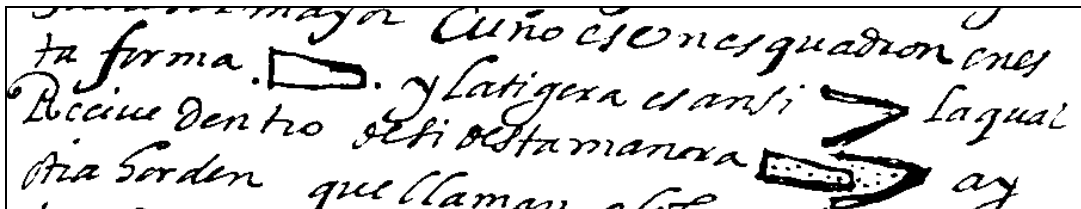 mayor Cuño es un esquadron en es
ta forma . . y la tigera es ansi la qual
Reciue dentro de si desta manera ay
otra horden que llaman